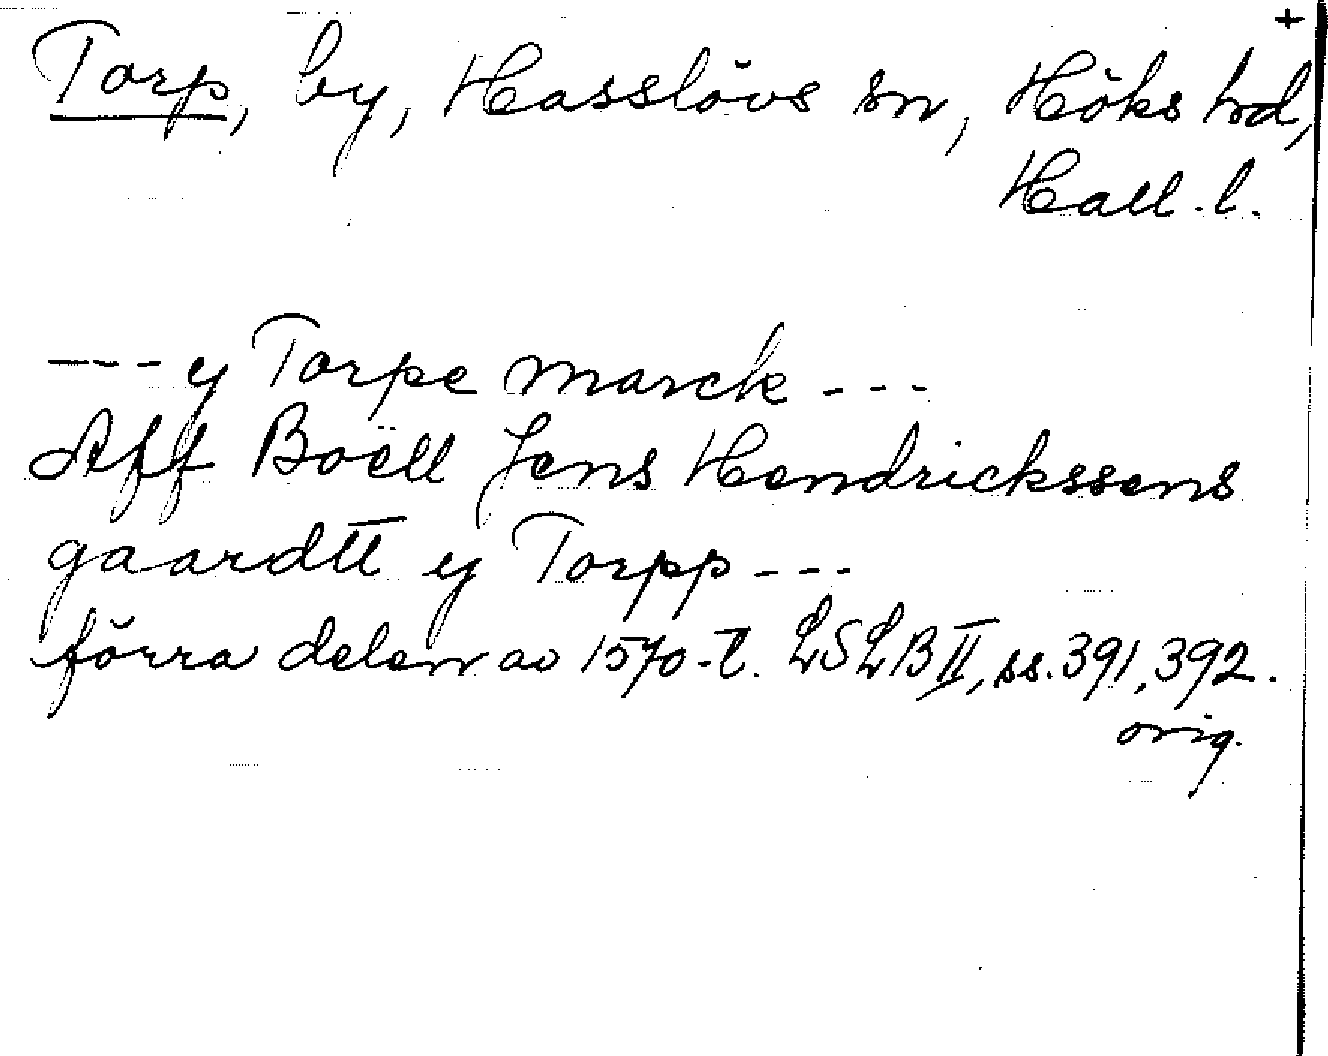 +
Torp, by, Hasslövs sn, Höks hd,
Hall. l.
--- y Torpe marck ---
Aff Boëll Jens Hendrickssens
gaardtt y Torpp ---
förra delen av 1570-t. LSLB II, ss. 391, 392.
orig.